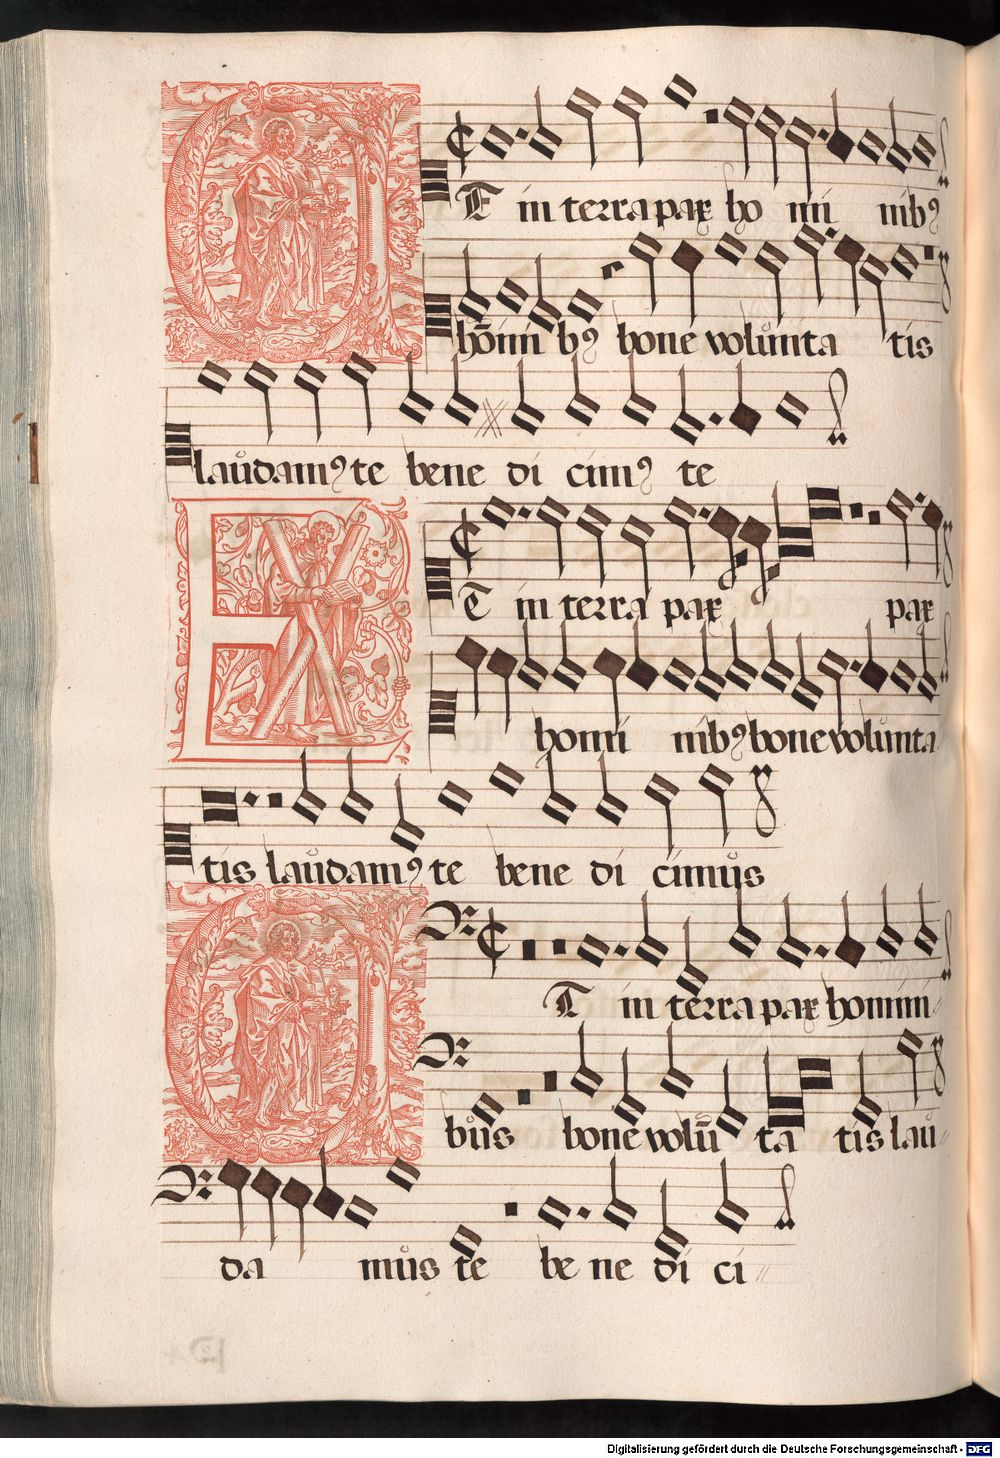 Et in terra pax ho mi nibꝰ
hōmi bꝰ bone volunta tis
laudamꝰ te bene di cimꝰ te
Et in terra pax pax
homi nibꝰ bone volunta
tis laudamꝰ te bene di cimus
Et in terra pax homini
bus bone volū ta tis lau
da mus te be ne di ci
Digitalisierung gefördert durch die Deutsche Forschungsgemeinschaft - DFG